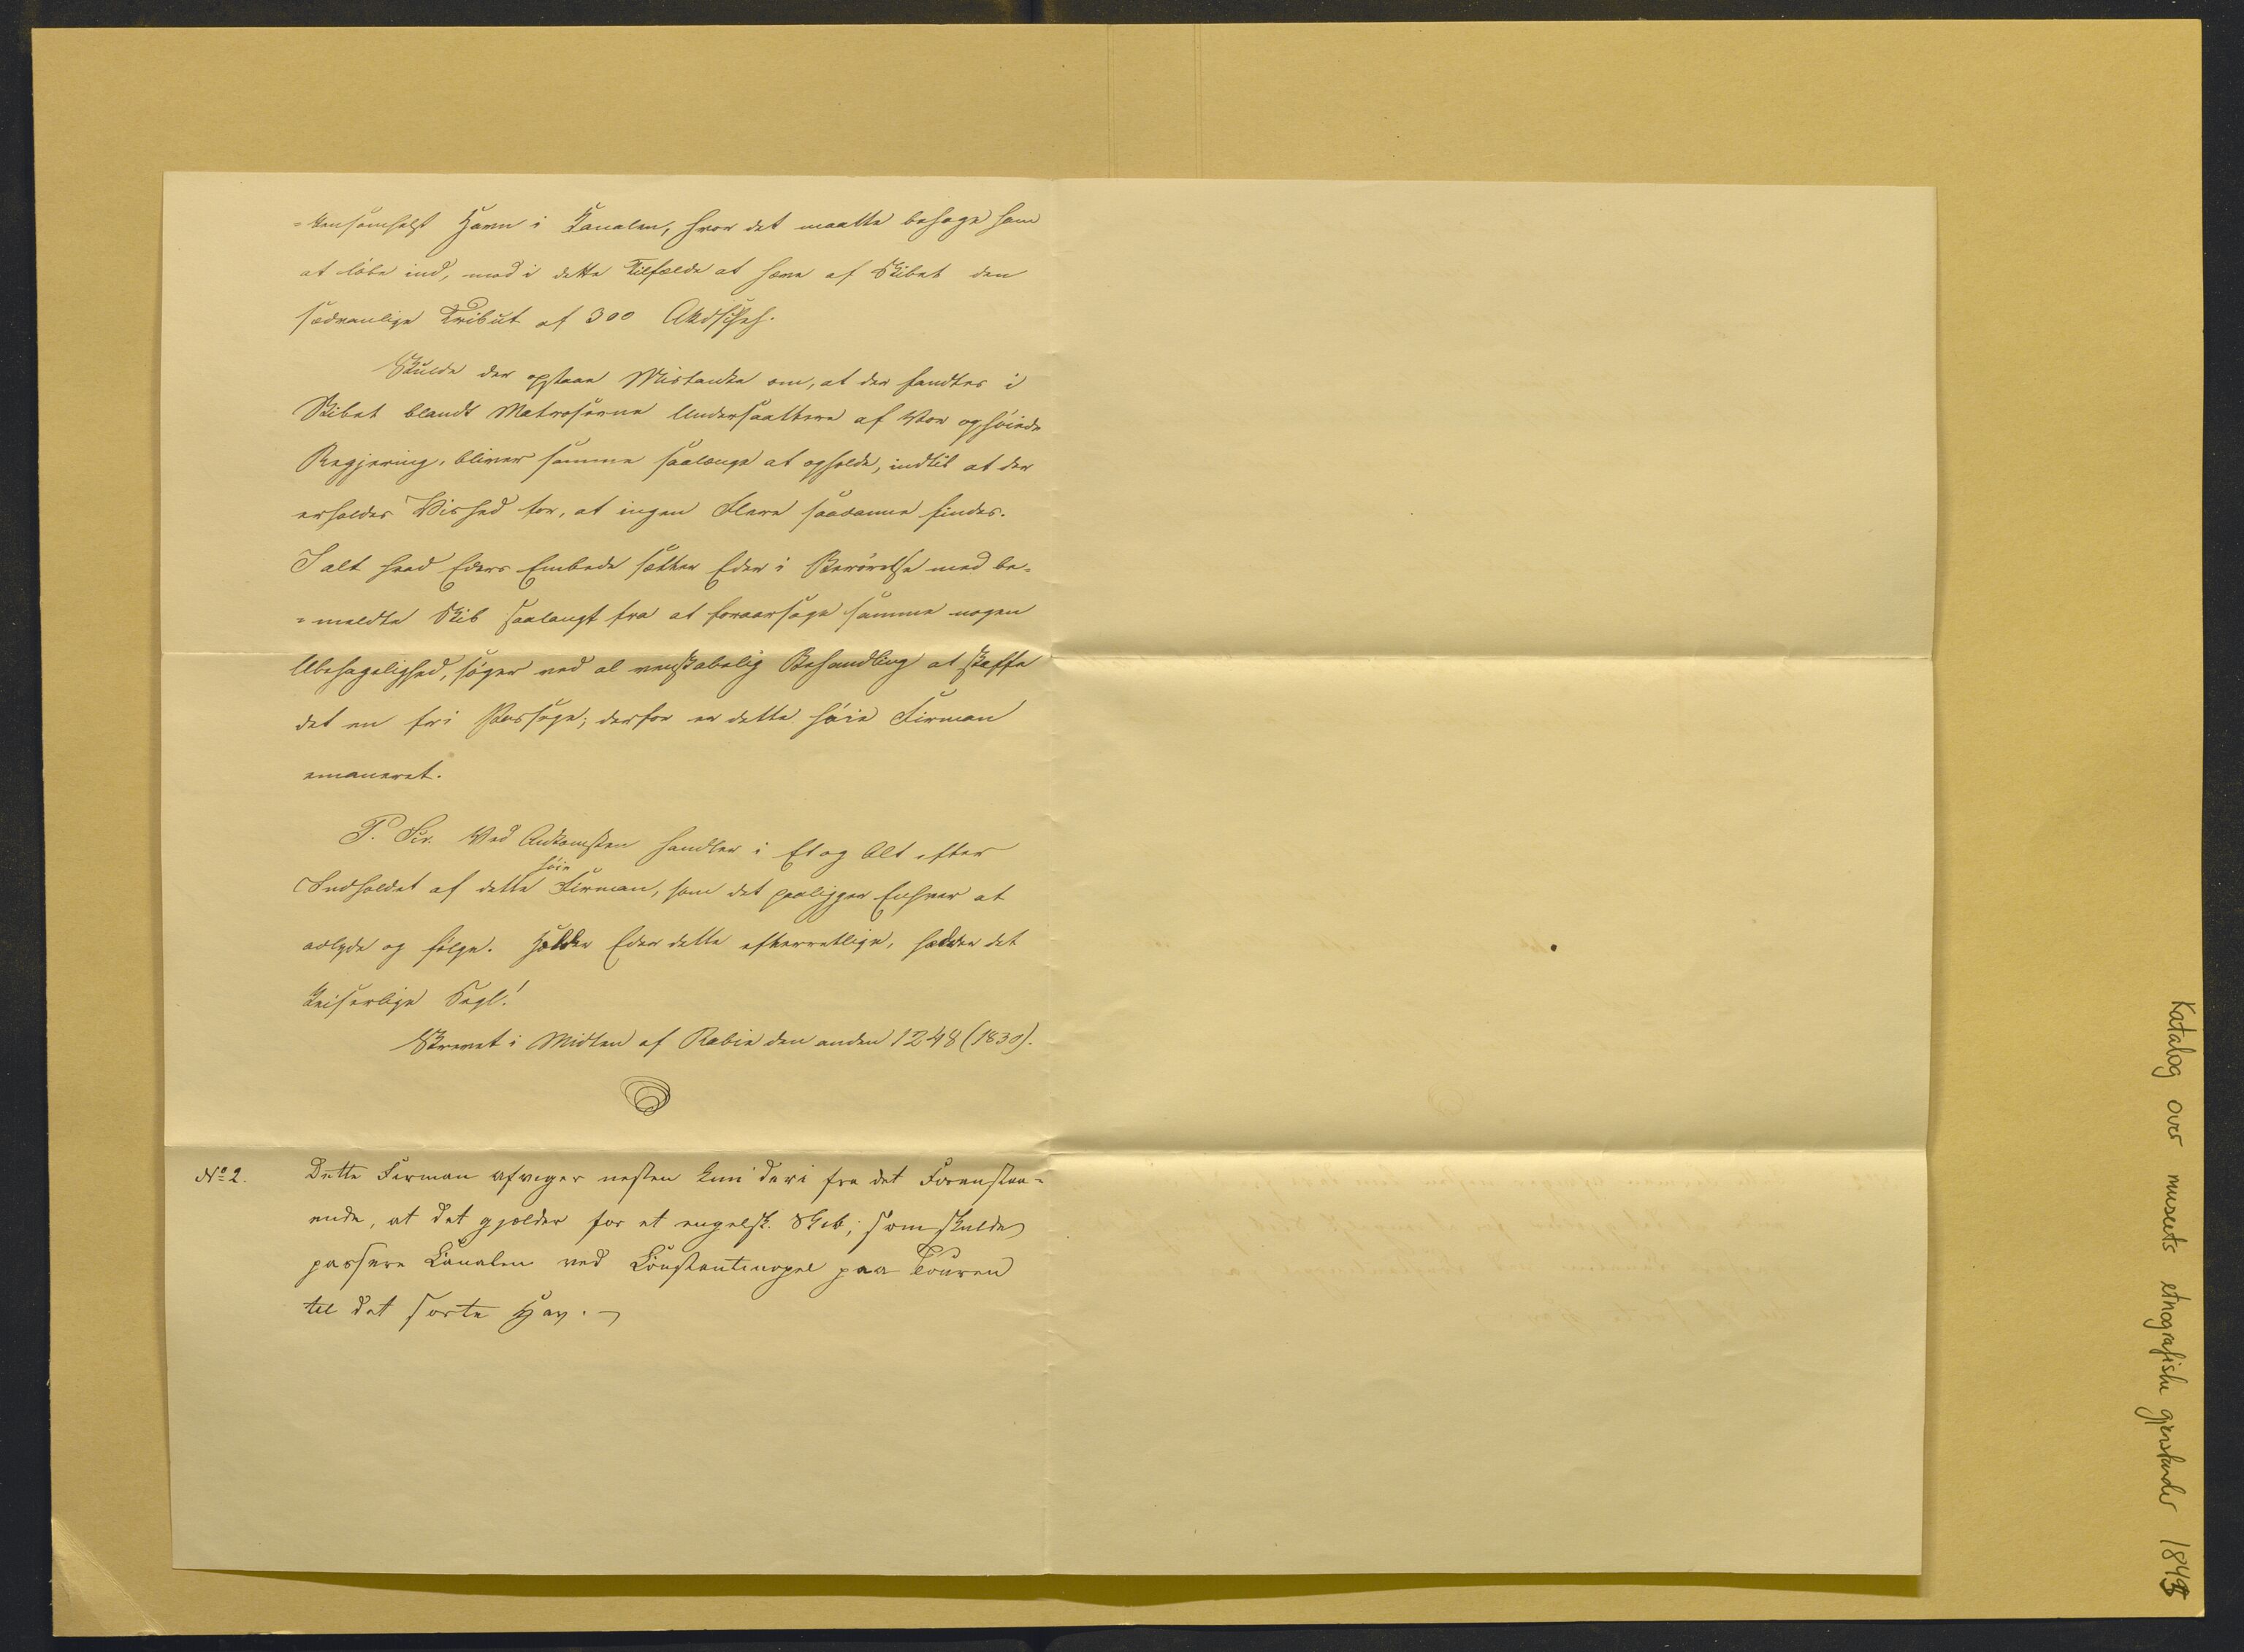 =kensomhelst Havn i Kanalen, hvor det maatte behage ham
at løbe ind, mod i dette Tilfælde at hæve af Skibet den
sædvanlige Tribut af 300 Akdschehs.
Skulde der opstaae Mistanke om, at der fandtes i
Skibet blandt Matroserne Undersaattere af Vor ophøiede
Regjering, bliver samme saalænge at opholde, indtil at der
erholdes Vished for, at ingen Flere saadanne findes.
I alt hvad Eders Embede sætter Eder i Berørelse med be-
=meldte Skib saalangt fra at foraarsage samme nogen
Ubehagelighed, søger ved al venskabelig Behandling at skaffe
det en fri Passage; derfor er dette høie Firman
emaneret.
P. Scr. Ved Ankomsten handler i Et og Alt efter
høie
Indholdet af dette Firman, som det paaligger Enhver at
adlyde og følge. Holder Eder dette efterretteligt, hædrer det
Keiserlige Segl!
Skrevet i Midten af Rabia den anden 1248 (1830).
No 2.
Dette Firman afviger næsten kun deri fra det Forenstaa-
ende, at det gjælder for et engelsk. Skib, som skulde
passere Canalen ved Constantinopel paa Touren
til det sorte Hav.
Katalog over museets etnografiske gjenstander